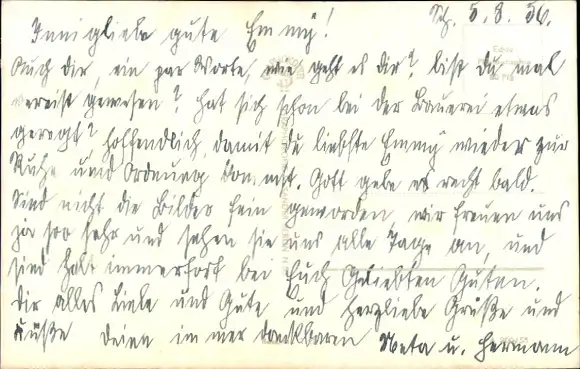 Sch. 5.8.36.
Inniggliebe gute Emmÿ!
Auch dir, ein par Worte, wie geht es dir? bist du mal
vereist gewesen? hat sich schon bei der Bauerei etwas
geregt? hoffendlich, damit du liebste Emmÿ wieder zur
Ruhe und Ordnung kommst. Gott gebe es recht bald.
Sind nicht die Bilder fein geworden, wir freuen uns
ja soo sehr und sehen sie uns alle Tage an, und
sind halt immerfort bei Euch Geliebten Guten.
Dir alles Liebe und Gute und herzliebe Grüße und
Küße deien immer dankbaren Meta u. Hermann